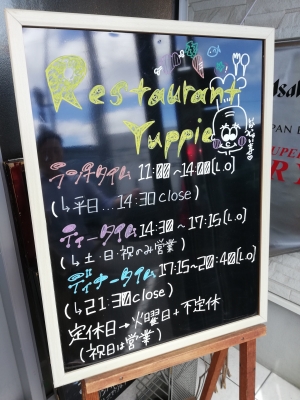 Restaurant
Yuppie
ランチタイム 11:00~14:00(L.O)
(↳平日...14:30close)
ティータイム 14:30~17:15(L.O)
(↳土・日・祝のみ営業)
ディナータイム 17:15~20:40(L.O)
(↳21:30close)
定休日→火曜日+不定休
(祝日は営業)
Asa
PAN
SUPER
RY